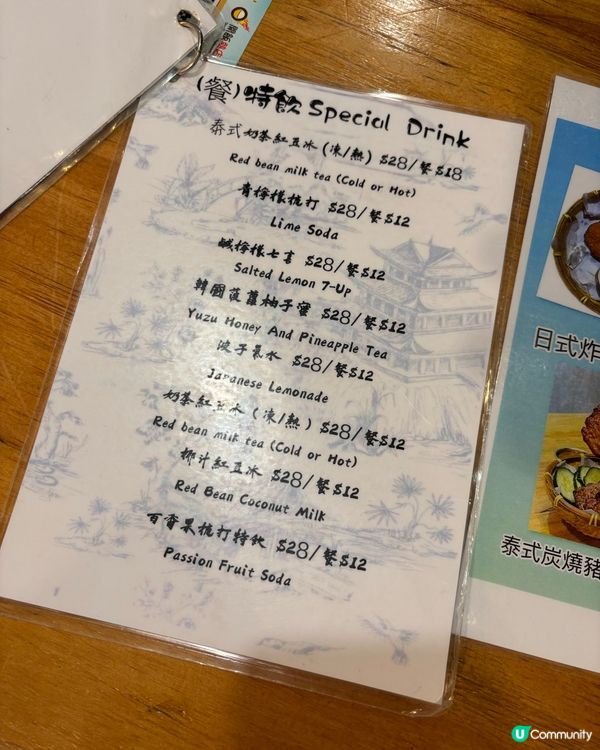 (餐)特飲 Special Drink
泰式奶茶紅豆冰(凍/熱) $28/餐$18
Red bean milk tea (Cold or Hot)
青檸檬梳打 $28/餐$12
Lime Soda
鹹檸檬七喜 $28/餐$12
Salted Lemon 7-Up
韓國菠蘿柚子蜜 $28/餐$12
Yuzu Honey And Pineapple Tea
波子氣水 $28/餐$12
Japanese Lemonade
奶茶紅豆冰(凍/熱) $28/餐$12
Red bean milk tea (Cold or Hot)
椰汁紅豆冰 $28/餐$12
Red Bean Coconut Milk
百香果梳打特飲 $28/餐$12
Passion Fruit Soda
日式炸
泰式炭燒豬
U Community